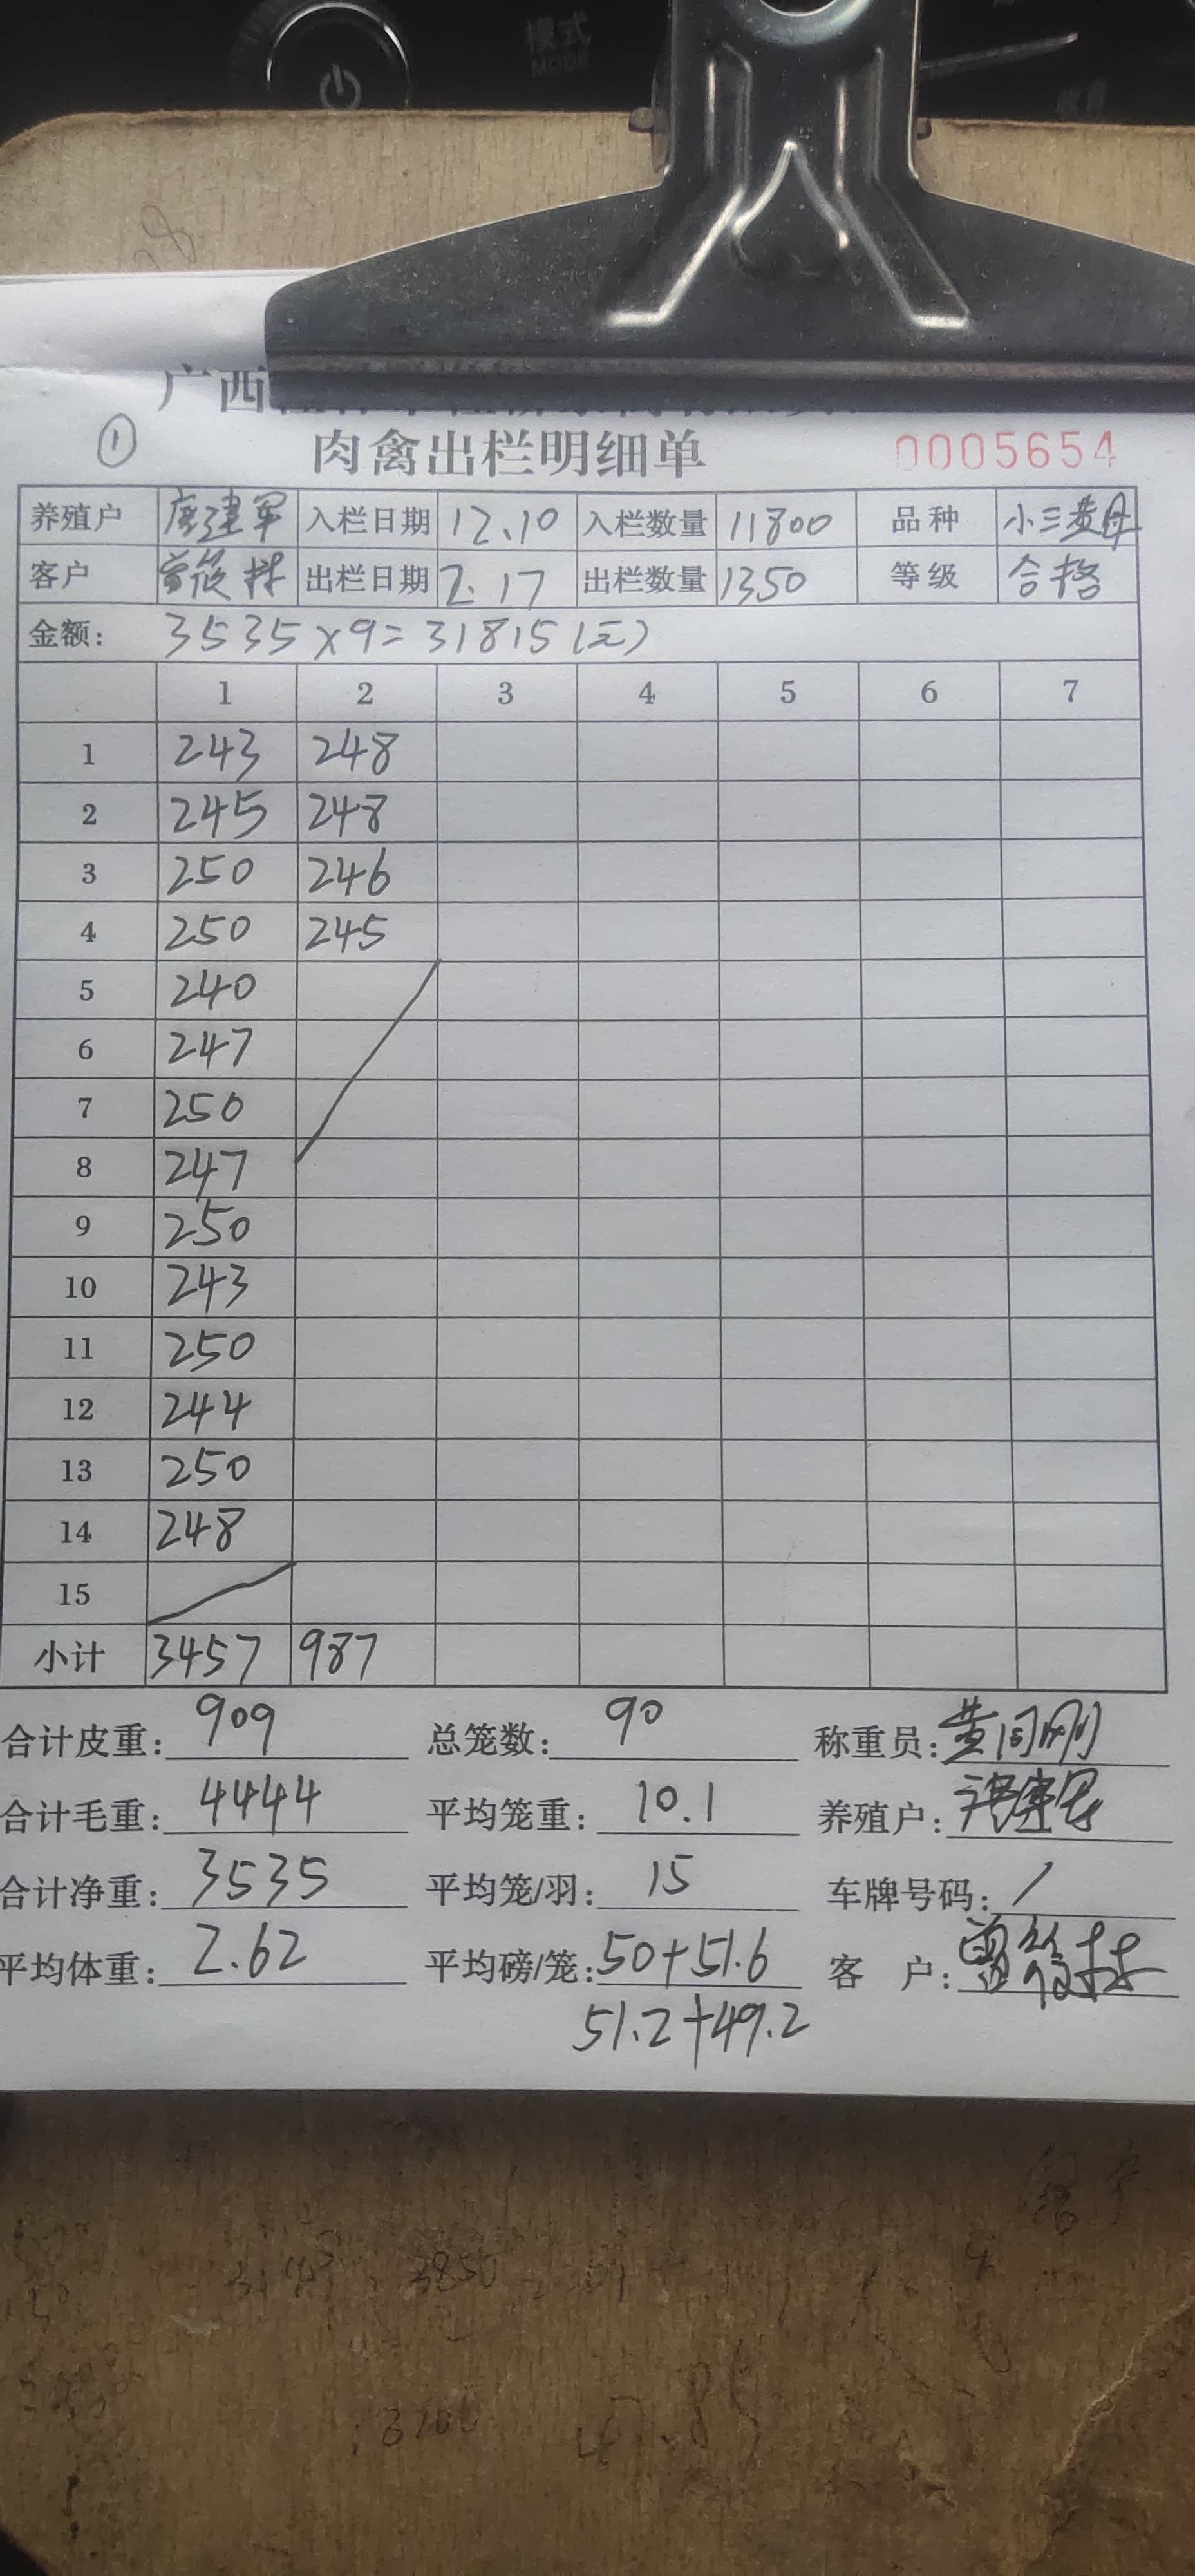 模式
MODE
广西
①
肉禽出栏明细单 0005654
养殖户 唐建军 入栏日期 12.10 入栏数量 11800 品种 小三黄母
客户 曾筱林 出栏日期 2.17 出栏数量 1350 等级 合格
金额: 3535×9=31815(元)
1 2 3 4 5 6 7
1 243 248
2 245 248
3 250 246
4 250 245
5 240
6 247
7 250
8 247
9 250
10 243
11 250
12 244
13 250
14 248
15
小计 3457 987
合计皮重: 909 总笼数: 90 称重员:
合计毛重: 4444 平均笼重: 10.1 养殖户: 唐建军
合计净重: 3535 平均笼/羽: 15 车牌号码: /
平均体重: 2.62 平均磅/笼: 50+51.6 客 户: 曾筱林
51.2+49.2